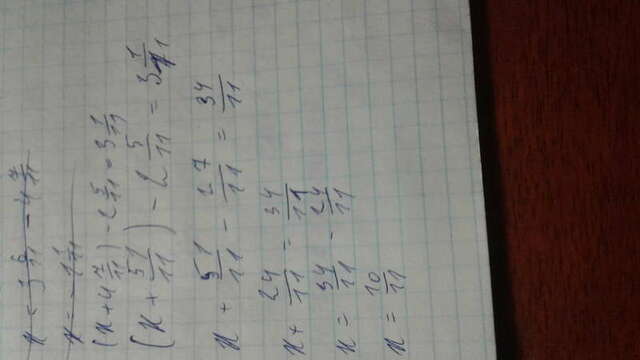 x = 3 6/11 - 4 7/11
x = - 1 1/11
(x + 4 7/11) - 2 5/11 = 3 1/11
(x + 51/11) - 2 5/11 = 3 1/11
x + 51/11 - 27/11 = 34/11
x + 24/11 = 34/11
x = 34/11 - 24/11
x = 10/11